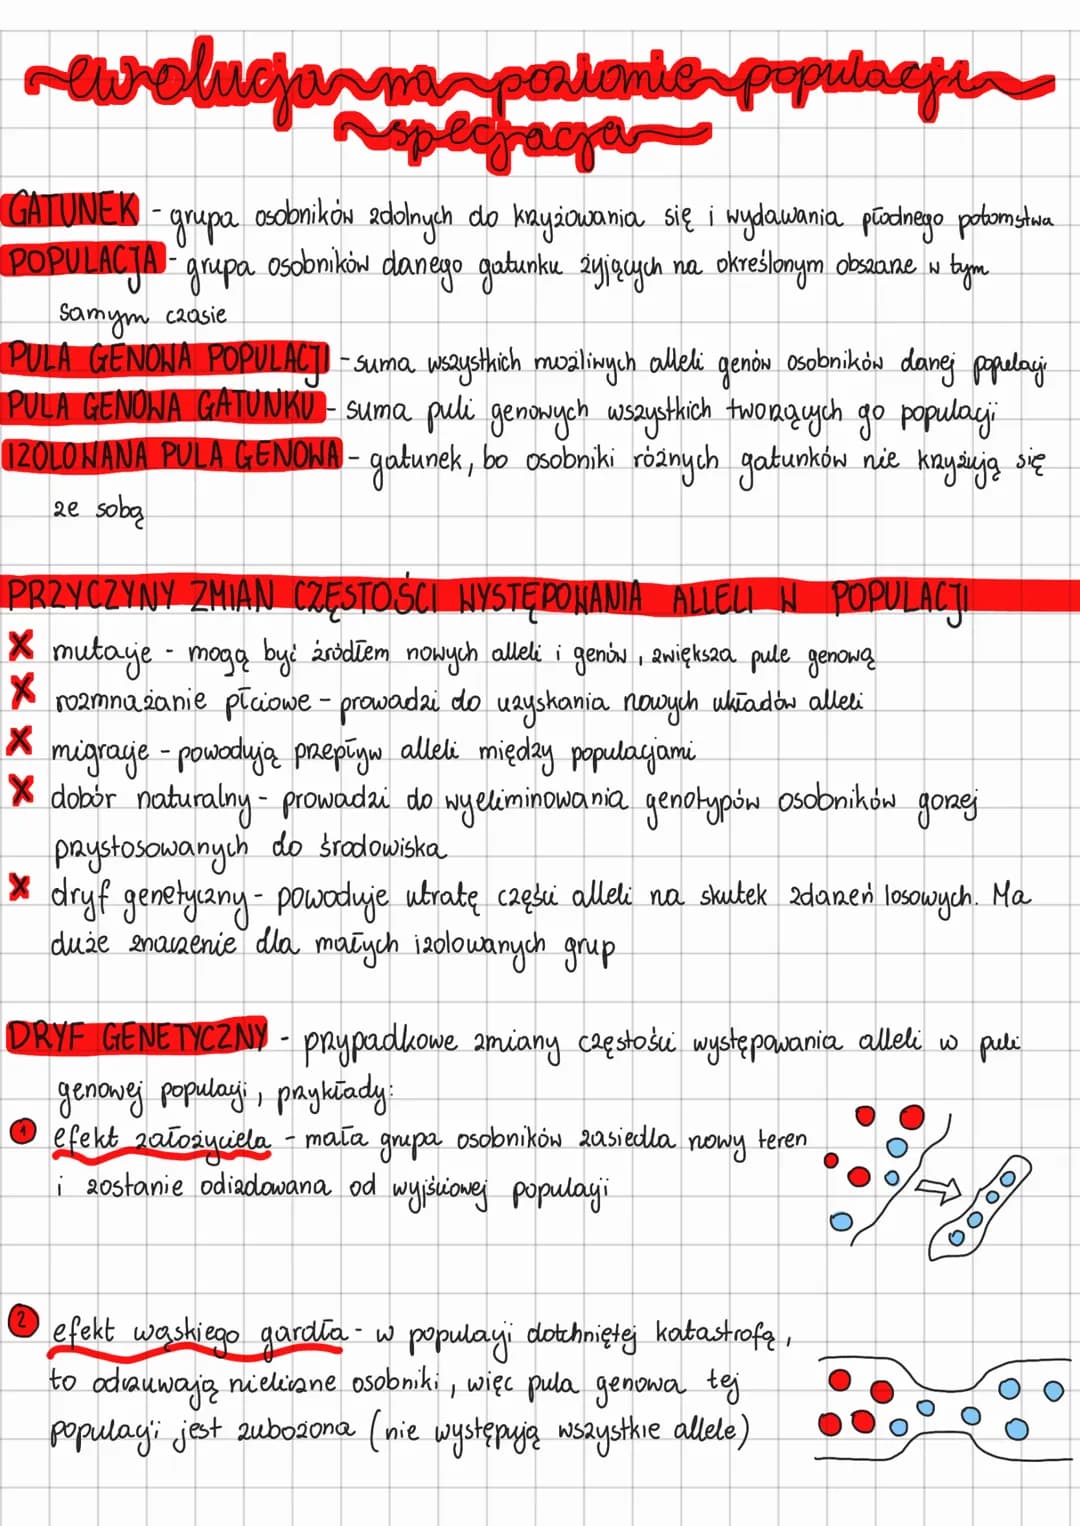 ewolucja na poziomie populacji
specjacja
GATUNEK - grupa osobników zdolnych do krzyżowania się i wydawania płodnego potomstwa
POPULACJA - grupa osobników danego gatunku żyjących na określonym obszarze w tym
samym czasie
PULA GENOWA POPULACJI - suma wszystkich możliwych alleli genów osobników danej populacji
PULA GENOWA GATUNKU - suma puli genowych wszystkich tworzących go populacji
IZOLOWANA PULA GENOWA - gatunek, bo osobniki różnych gatunków nie krzyżują się
ze sobą
PRZYCZYNY ZMIAN CZĘSTOŚCI WYSTĘPOWANIA ALLELI W POPULACJI
x mutacje - mogą być źródłem nowych alleli i genów, zwiększa pule genową
x rozmnażanie płciowe - prowadzi do uzyskania nowych układów alleli
x migracje - powodują przepływ alleli między populacjami
x dobór naturalny - prowadzi do wyeliminowania genotypów osobników gorzej
przystosowanych do środowiska
x dryf genetyczny - powoduje utratę części alleli na skutek zdarzeń losowych. Ma
duże znaczenie dla małych izolowanych grup
DRYF GENETYCZNY - przypadkowe zmiany częstości występowania alleli w puli
genowej populacji, przykłady:
1 efekt założyciela - mała grupa osobników zasiedla nowy teren
i zostanie odizadowana od wyjściowej populacji
2 efekt wąskiego gardła - w populacji dotchniętej katastrofą,
to odczuwają nieliczne osobniki, więc pula genowa tej
populacji jest zubożona (nie występują wszystkie allele)